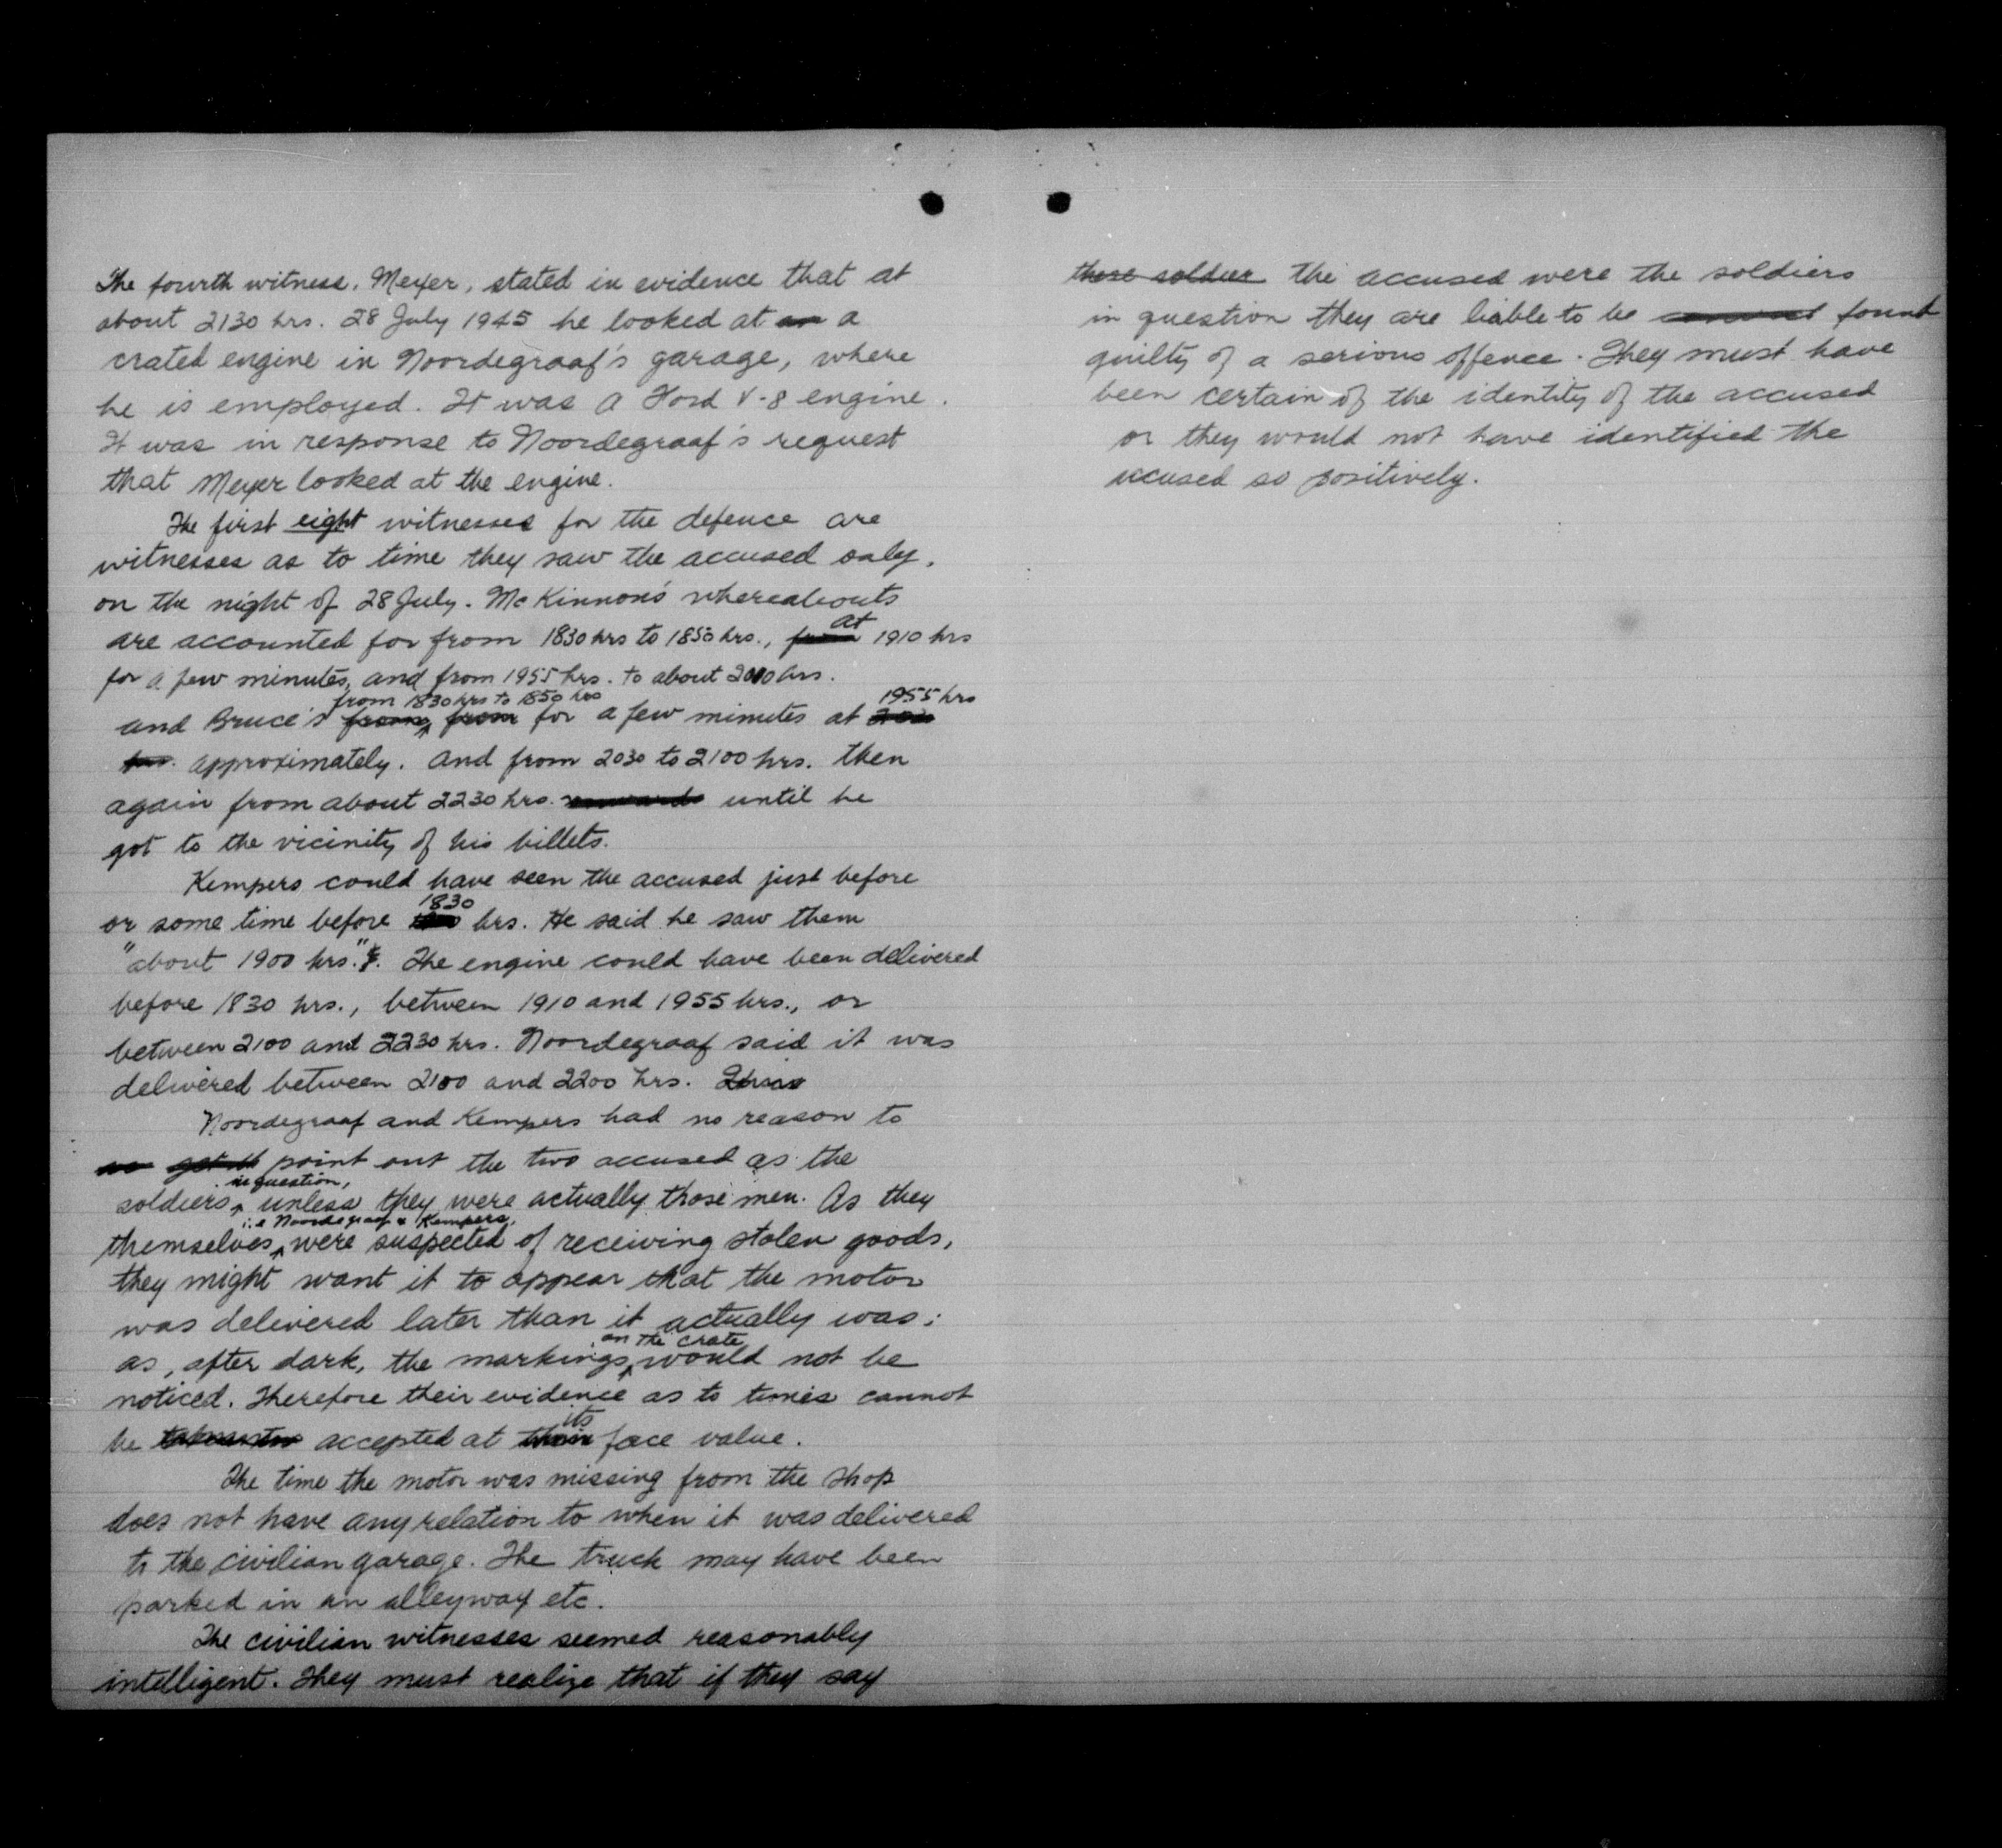 The fourth witness, Meyer, stated in evidence that at
about 2130 hrs. 28 July 1945 he looked at an a
crated engine in Noordegraaf's garage, where
he is employed. It was a Ford V-8 engine.
It was in response to Noordegraaf's request
that Meyer looked at the engine.
The first eight witnesses for the defence are
witnesses as to time they saw the accused only,
on the night of 28 July. McKinnon's whereabouts
are accounted for from 1830 hrs to 1850 hrs., from at 1910 hrs
for a few minutes, and from 1955 hrs. to about 2000 hrs.
and Bruce's from from 1830 hrs to 1850 hrs from for a few minutes at 1955 hrs
hrs. approximately. And from 2030 to 2100 hrs. then
again from about 2230 hrs. onwards until he
got to the vicinity of his billets.
Kempers could have seen the accused just before
or some time before 1830 hrs. He said he saw them
"about 1900 hrs." The engine could have been delivered
before 1830 hrs., between 1910 and 1955 hrs., or
between 2100 and 2230 hrs. Noordegraaf said it was
delivered between 2100 and 2200 hrs.
Noordegraaf and Kempers had no reason to
point out the two accused as the
soldiers in question, unless they were actually those men. As they
themselves i.e Noordegraaf & Kempers, were suspected of receiving stolen goods,
they might want it to appear that the motor
was delivered later than it actually was;
as, after dark, the markings on the crate would not be
noticed. Therefore their evidence as to times cannot
be accepted at their its face value.
The time the motor was missing from the shop
does not have any relation to when it was delivered
to the civilian garage. The truck may have been
parked in an alleyway etc.
The civilian witnesses seemed reasonably
intelligent. They must realize that if they say
these soldier the accused were the soldiers
in question they are liable to be found
guilty of a serious offence. They must have
been certain of the identity of the accused
or they would not have identified the
accused so positively.